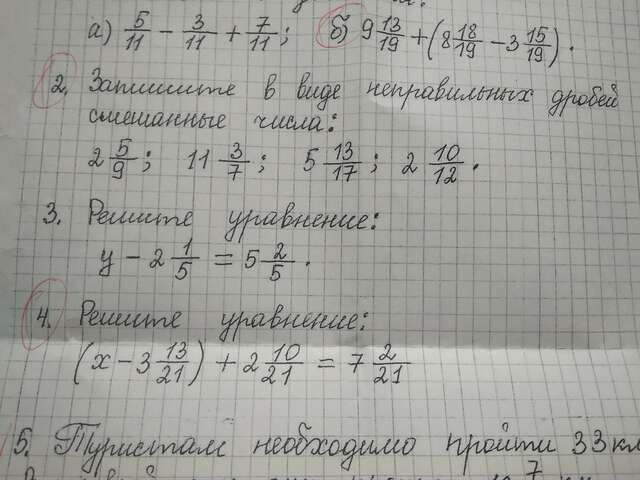 а) 5/11 - 3/11 + 7/11; б) 9 13/19 + (8 18/19 - 3 15/19).
2. Запишите в виде неправильных дробей
смешанные числа:
2 5/9; 11 3/7; 5 13/17; 2 10/12.
3. Решите уравнение:
y - 2 1/5 = 5 2/5.
4. Решите уравнение:
(x - 3 13/21) + 2 10/21 = 7 2/21
5. Туристам необходимо пройти 33 км